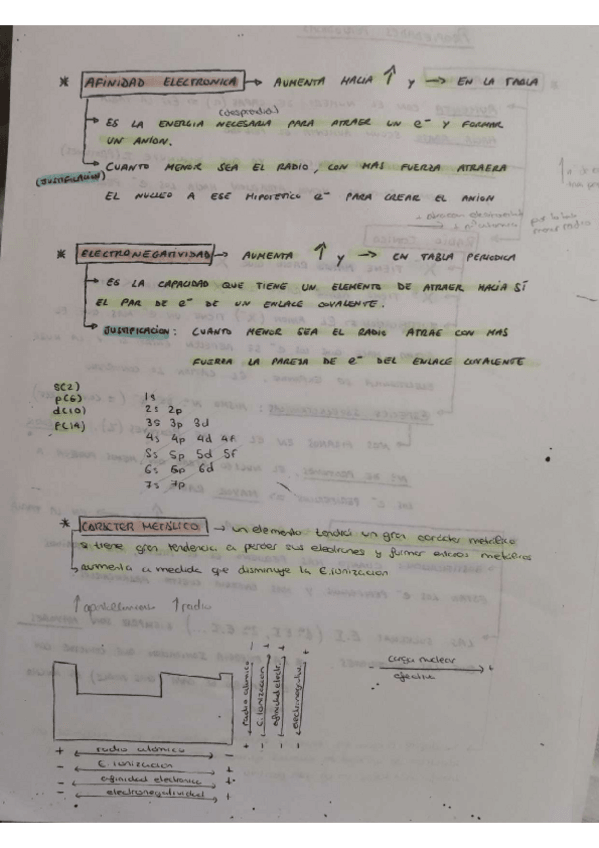 * AFINIDAD ELECTRONICA → AUMENTA HACIA ↑ y → EN LA TABLA
(desprendia)
→ ES LA ENERGIA NECESARIA PARA ATRAER UN e⁻ Y FORMAR
UN ANION.
→ CUANTO MENOR SEA EL RADIO, CON MAS FUERZA ATRAERA
(JUSTIFICACION)
EL NUCLEO A ESE HIPOTETICO e⁻ PARA CREAR EL ANION
* ELECTRONEGATIVIDAD → AUMENTA ↑ y → EN TABLA PERIODICA
→ ES LA CAPACIDAD QUE TIENE UN ELEMENTO DE ATRAER HACIA SÍ
EL PAR DE e⁻ DE UN ENLACE COVALENTE.
→ JUSTIFICACION: CUANTO MENOR SEA EL RADIO ATRAE CON MAS
FUERZA LA PAREJA DE e⁻ DEL ENLACE COVALENTE
s(2)
p(6)
d(10)
f(14)
1s
2s 2p
3s 3p 3d
4s 4p 4d 4f
5s 5p 5d 5f
6s 6p 6d
7s 7p
* CARÁCTER METÁLICO → un elemento tendrá un gran carácter metálico
si tiene gran tendencia a perder sus electrones y formar enlaces metálicos
→ aumenta a medida que disminuye la E.ionizacion
↑ apantallamiento ↑ radio
- carga nuclear +
efectiva
- + + +
radio atómico
E. Ionizacion
afinidad electr.
electronegativa
+ - - -
+ radio atómico -
- E. ionización +
- afinidad electronica +
- electronegatividad +